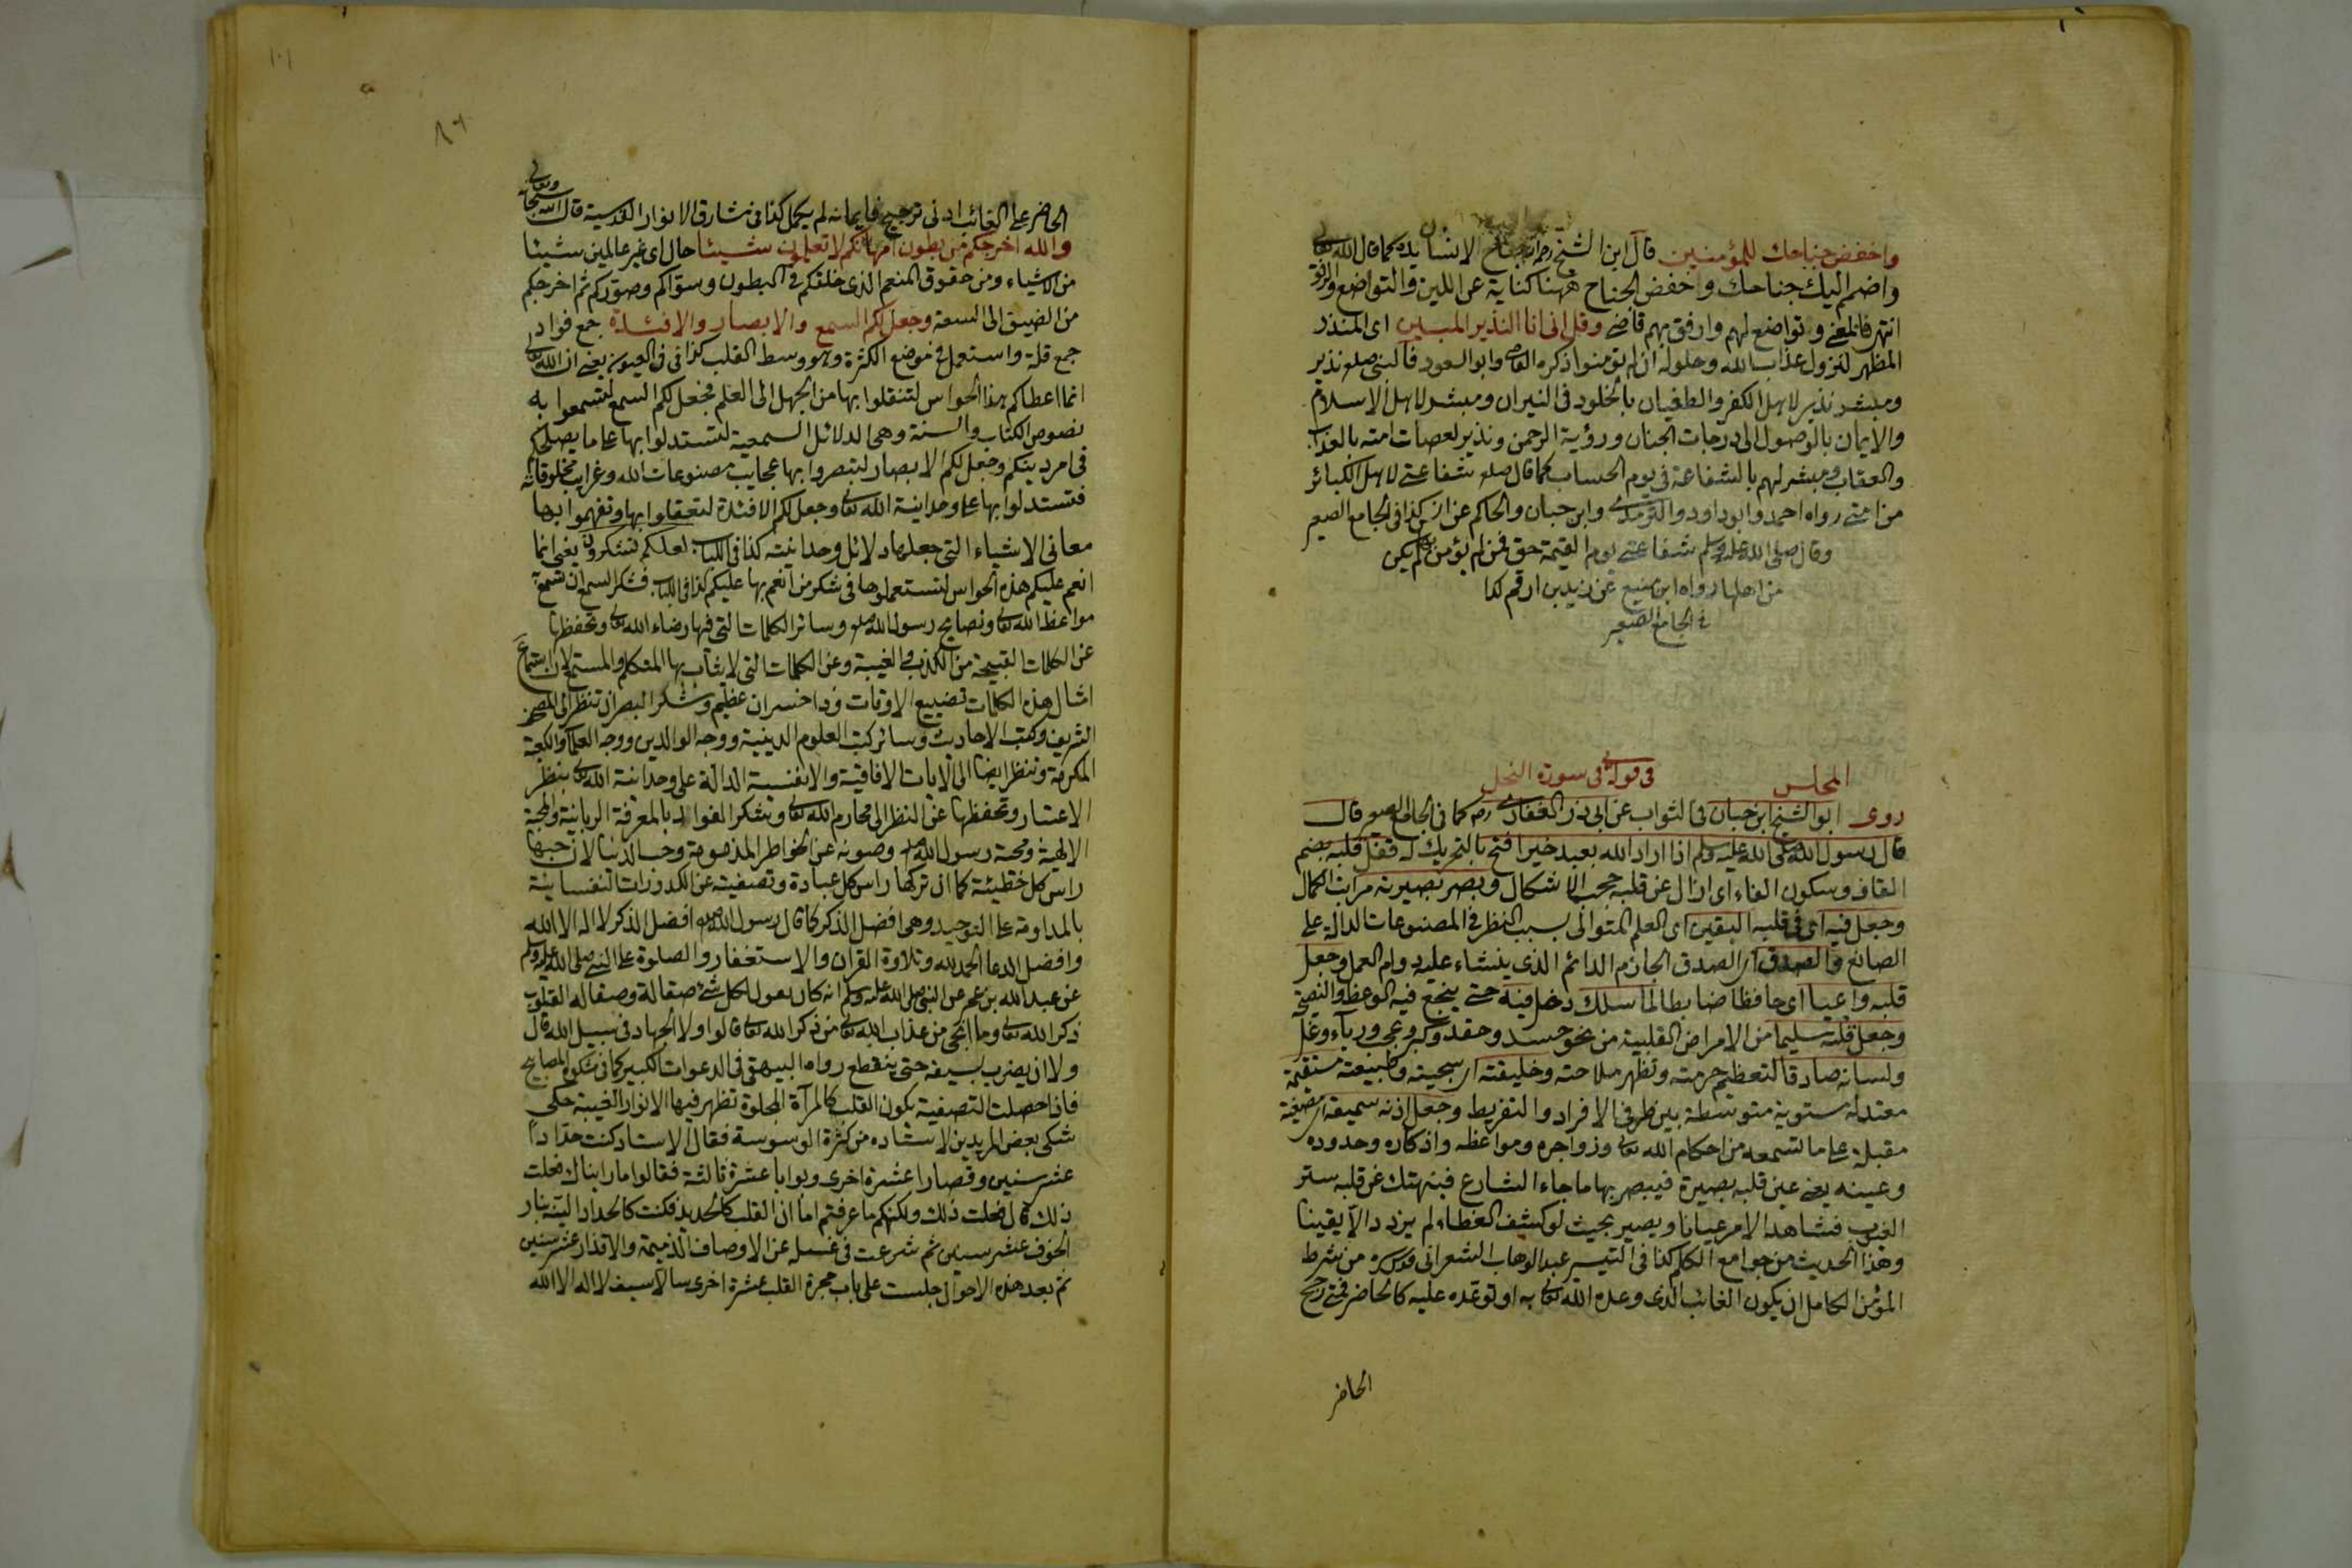 واخفض جناحك للمؤمنين قال ابن الشيخ رحمه الله جناح الانسان يده كما قال الله تعالى
واضمم اليك جناحك وخفض الجناح ههنا كناية عن اللين والتواضع والرفق
انتهى فالمعنى وتواضع لهم وارفق بهم قاضى وقل انى انا النذير المبين اى المنذر
المظهر لنزول عذاب الله وحلوله ان لم تؤمنوا ذكره القاضى وابو السعود فالنبى صلعم نذير
ومبشر نذير لاهل الكفر والطغيان بالخلود فى النيران ومبشر لاهل الاسلام
والايمان بالوصول الى درجات الجنان ورؤية الرحمن ونذير لعصات امته بالعذاب
والعقاب ومبشر لهم بالشفاعة فى يوم الحساب كما قال صلعم شفاعتى لاهل الكبائر
من امتى رواه احمد وابو داود والترمذى وابن حبان والحاكم عن انس كذا فى الجامع الصغير
وقال صلى الله عليه وسلم شفاعتى يوم القيمة حق فمن لم يؤمن بها لم يكن
من اهلها رواه ابن منيع عن زيد بن ارقم كذا
فى الجامع الصغير
المجلس فى قوله تعالى فى سورة النحل
روى ابو الشيخ ابن حبان فى الثواب عن ابى ذر الغفارى رضه كما فى الجامع الصغير قال
قال رسول الله صلى الله عليه وسلم اذا اراد الله بعبد خيرا فتح بالتحريك له قفل قلبه بضم
القاف وسكون الفاء اى ازال عن قلبه حجب الاشكال وبصر بصيرته مراتب الكمال
وجعل فيه اى فى قلبه اليقين اى العلم المتوالى بسبب النظر فى المصنوعات الدالة على
الصانع والصدق اى الصدق الجازم الدائم الذى ينشاء عليه دوام العمل وجعل
قلبه واعيا اى حافظا ضابطا لما سلك دخل فيه حتى ينجع فيه الوعظ والنصيحة
وجعل قلبه سليما من الامراض القلبية من نحو حسد وحقد وكبر وعجب ورياء وغل
ولسانه صادقا لتعظم حرمته وتظهر ملاحته وخليقته اى سجيته وطبيعته مستقيمة
معتدلة مستوية متوسطة بين طرفى الافراد والتفريط وجعل اذنه سميعة اى مصغية
مقبلة على ما تسمعه من احكام الله تعالى وزواجره ومواعظه واذكاره وحدوده
وعينه يعنى عين قلبه بصيرة فيبصر بها ما جاء الشارع فينهتك عن قلبه ستر
الغيوب فشاهد الامر عيانا ويصير بحيث لو كشف الغطاء لم يزدد الا يقينا
وهذا الحديث من جوامع الكلم كذا فى التيسير عبد الوهاب الشعرانى قدس سره من شرط
المؤمن الكامل ان يكون الغائب الذى وعده الله تعالى به او توعده عليه كالحاضر فمتى رجح
الحاضر
١٠١
٨٩
الحاضر على الغائب ادنى ترجيح فايمانه لم يكمل كذا فى مشارق الانوار القدسية قال الله سبحانه وتعالى
والله اخرجكم من بطون امهاتكم لا تعلمون شيئا حال اى غير عالمين شيئا
من الاشياء ومن حقوق المنعم الذى خلقكم فى البطون وسواكم وصوركم ثم اخرجكم
من الضيق الى السعة وجعل لكم السمع والابصار والافئدة جمع فواد
جمع قلة واستعمل فى موضع الكثرة وهو وسط القلب كذا فى العيون يعنى ان الله تعالى
انما اعطاكم هذا الحواس لتنتقلوا بها من الجهل الى العلم فجعل لكم السمع لتسمعوا به
نصوص الكتاب والسنة وهى الدلائل السمعية لتستدلوا بها على ما يصلحكم
فى امر دينكم وجعل لكم الابصار لتبصروا بها عجايب مصنوعات الله وغرايب مخلوقاته
فتستدلوا بها على وحدانية الله تعالى وجعل لكم الافئدة لتعقلوا بها وتفهموا بها
معانى الاشياء التى جعلها دلائل وحدانيته كذا فى اللباب لعلكم تشكرون يعنى انما
انعم عليكم هذه الحواس لتستعملوها فى شكر من انعم بها عليكم كذا فى اللباب فشكر السمع ان تسمع
مواعظ الله تعالى ونصايح رسول الله صلعم وسائر الكلمات التى فيها رضاء الله تعالى وتحفظها
عن الكلمات القبيحة من الكذب والغيبة وعن الكلمات التى لا يثاب بها المتكلم والمستمع لان استماع
امثال هذه الكلمات تضييع الاوقات وذا خسران عظيم وشكر البصر ان تنظر الى المصحف
الشريف وكتب الاحاديث وسائر كتب العلوم الدينية ووجه الوالدين ووجه العلماء والكعبة
المكرمة وتنظر ايضا الى الايات الافاقية والانفسية الدالة على وحدانية الله تعالى بنظر
الاعتبار وتحفظها عن النظر الى محارم الله تعالى وشكر الفواد بالمعرفة الربانية والمحبة
الالهية ومحبة رسول الله صلعم وصونه عن الخواطر المذمومة وحب الدنيا لان حبها
راس كل خطيئة كما ان تركها راس كل عبادة وتصفيته عن الكدورات النفسانية
بالمداومة على التوحيد وهى افضل الذكر كما قال رسول الله صلعم افضل الذكر لا اله الا الله
وافضل الدعا الحمد لله وتلاوة القران والاستغفار والصلوة على النبى صلى الله عليه وسلم
عن عبد الله بن عمر عن النبى صلى الله عليه وسلم انه كان يقول لكل شئ صقالة وصقالة القلوب
ذكر الله تعالى وما انجى من عذاب الله تعالى من ذكر الله تعالى قالوا ولا الجهاد فى سبيل الله قال
ولا ان يضرب بسيفه حتى ينقطع رواه البيهقى فى الدعوات الكبير كما فى مشكوة المصابيح
فاذا حصلت التصفية يكون القلب كالمرآة المجلوة تظهر فيها الانوار الغيبية حكى
شكى بعض المريدين لاستاذه من كثرة الوسوسة فقال الاستاد كنت حدادا
عشر سنين وقصارا عشرة اخرى وبوابا عشرة ثالثة فقالوا ما رايناك فعلت
ذلك قال فعلت ذلك ولكنكم ما عرفتم اما ان القلب كالحديد فكنت كالحداد الينه بنار
الخوف عشر سنين ثم شرعت فى غسله عن الاوصاف الذميمة والاقذار عشر سنين
ثم بعد هذه الاحوال جلست على باب حجرة القلب عشرة اخرى سالا سيف لا اله الا الله